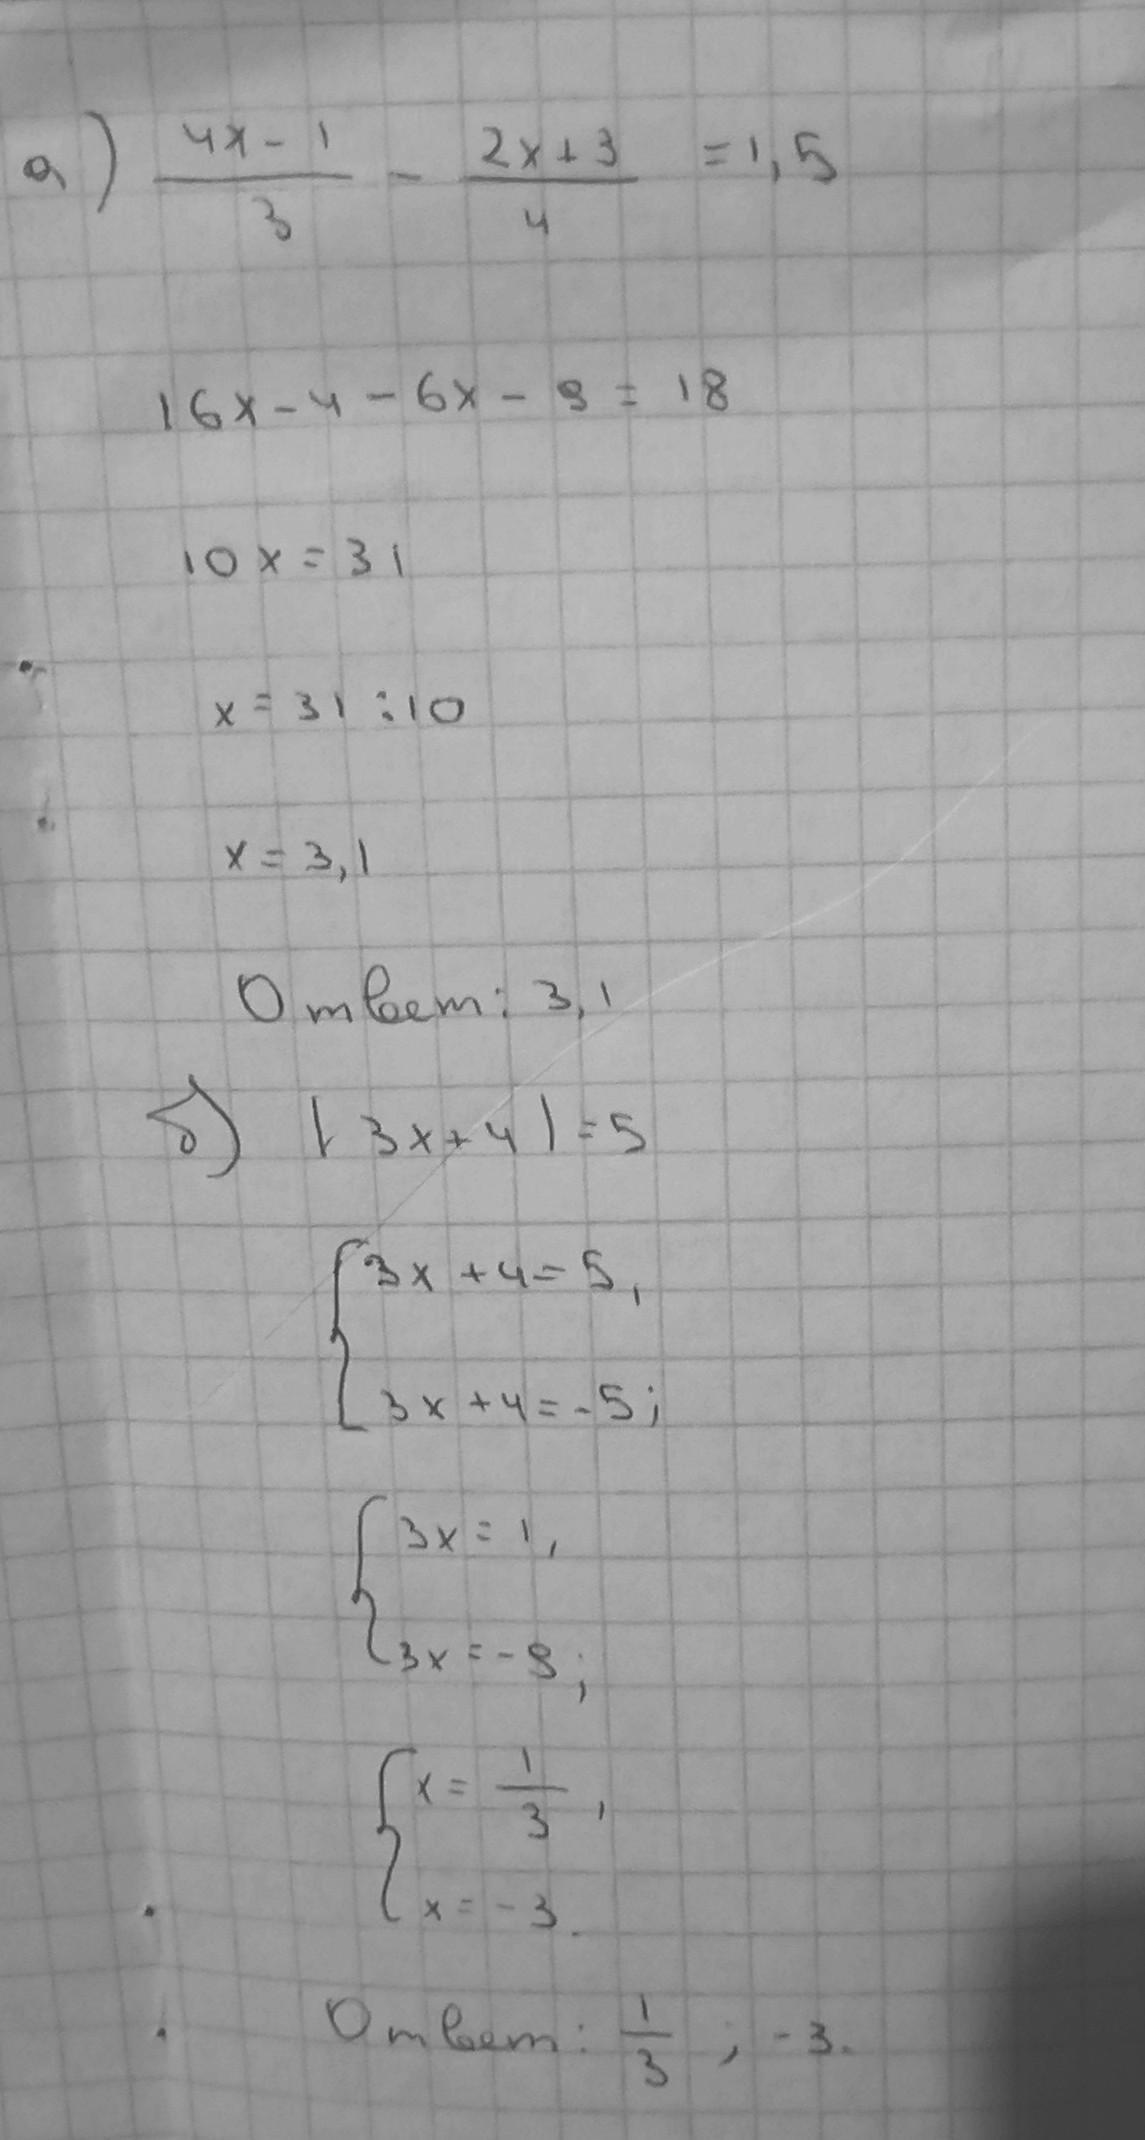 а) (4x - 1)/3 - (2x + 3)/4 = 1,5
16x - 4 - 6x - 9 = 18
10x = 31
x = 31 : 10
x = 3,1
Ответ: 3,1
б) |3x + 4| = 5
{ 3x + 4 = 5,
3x + 4 = -5;
{ 3x = 1,
3x = -9;
{ x = 1/3,
x = -3.
Ответ: 1/3; -3.